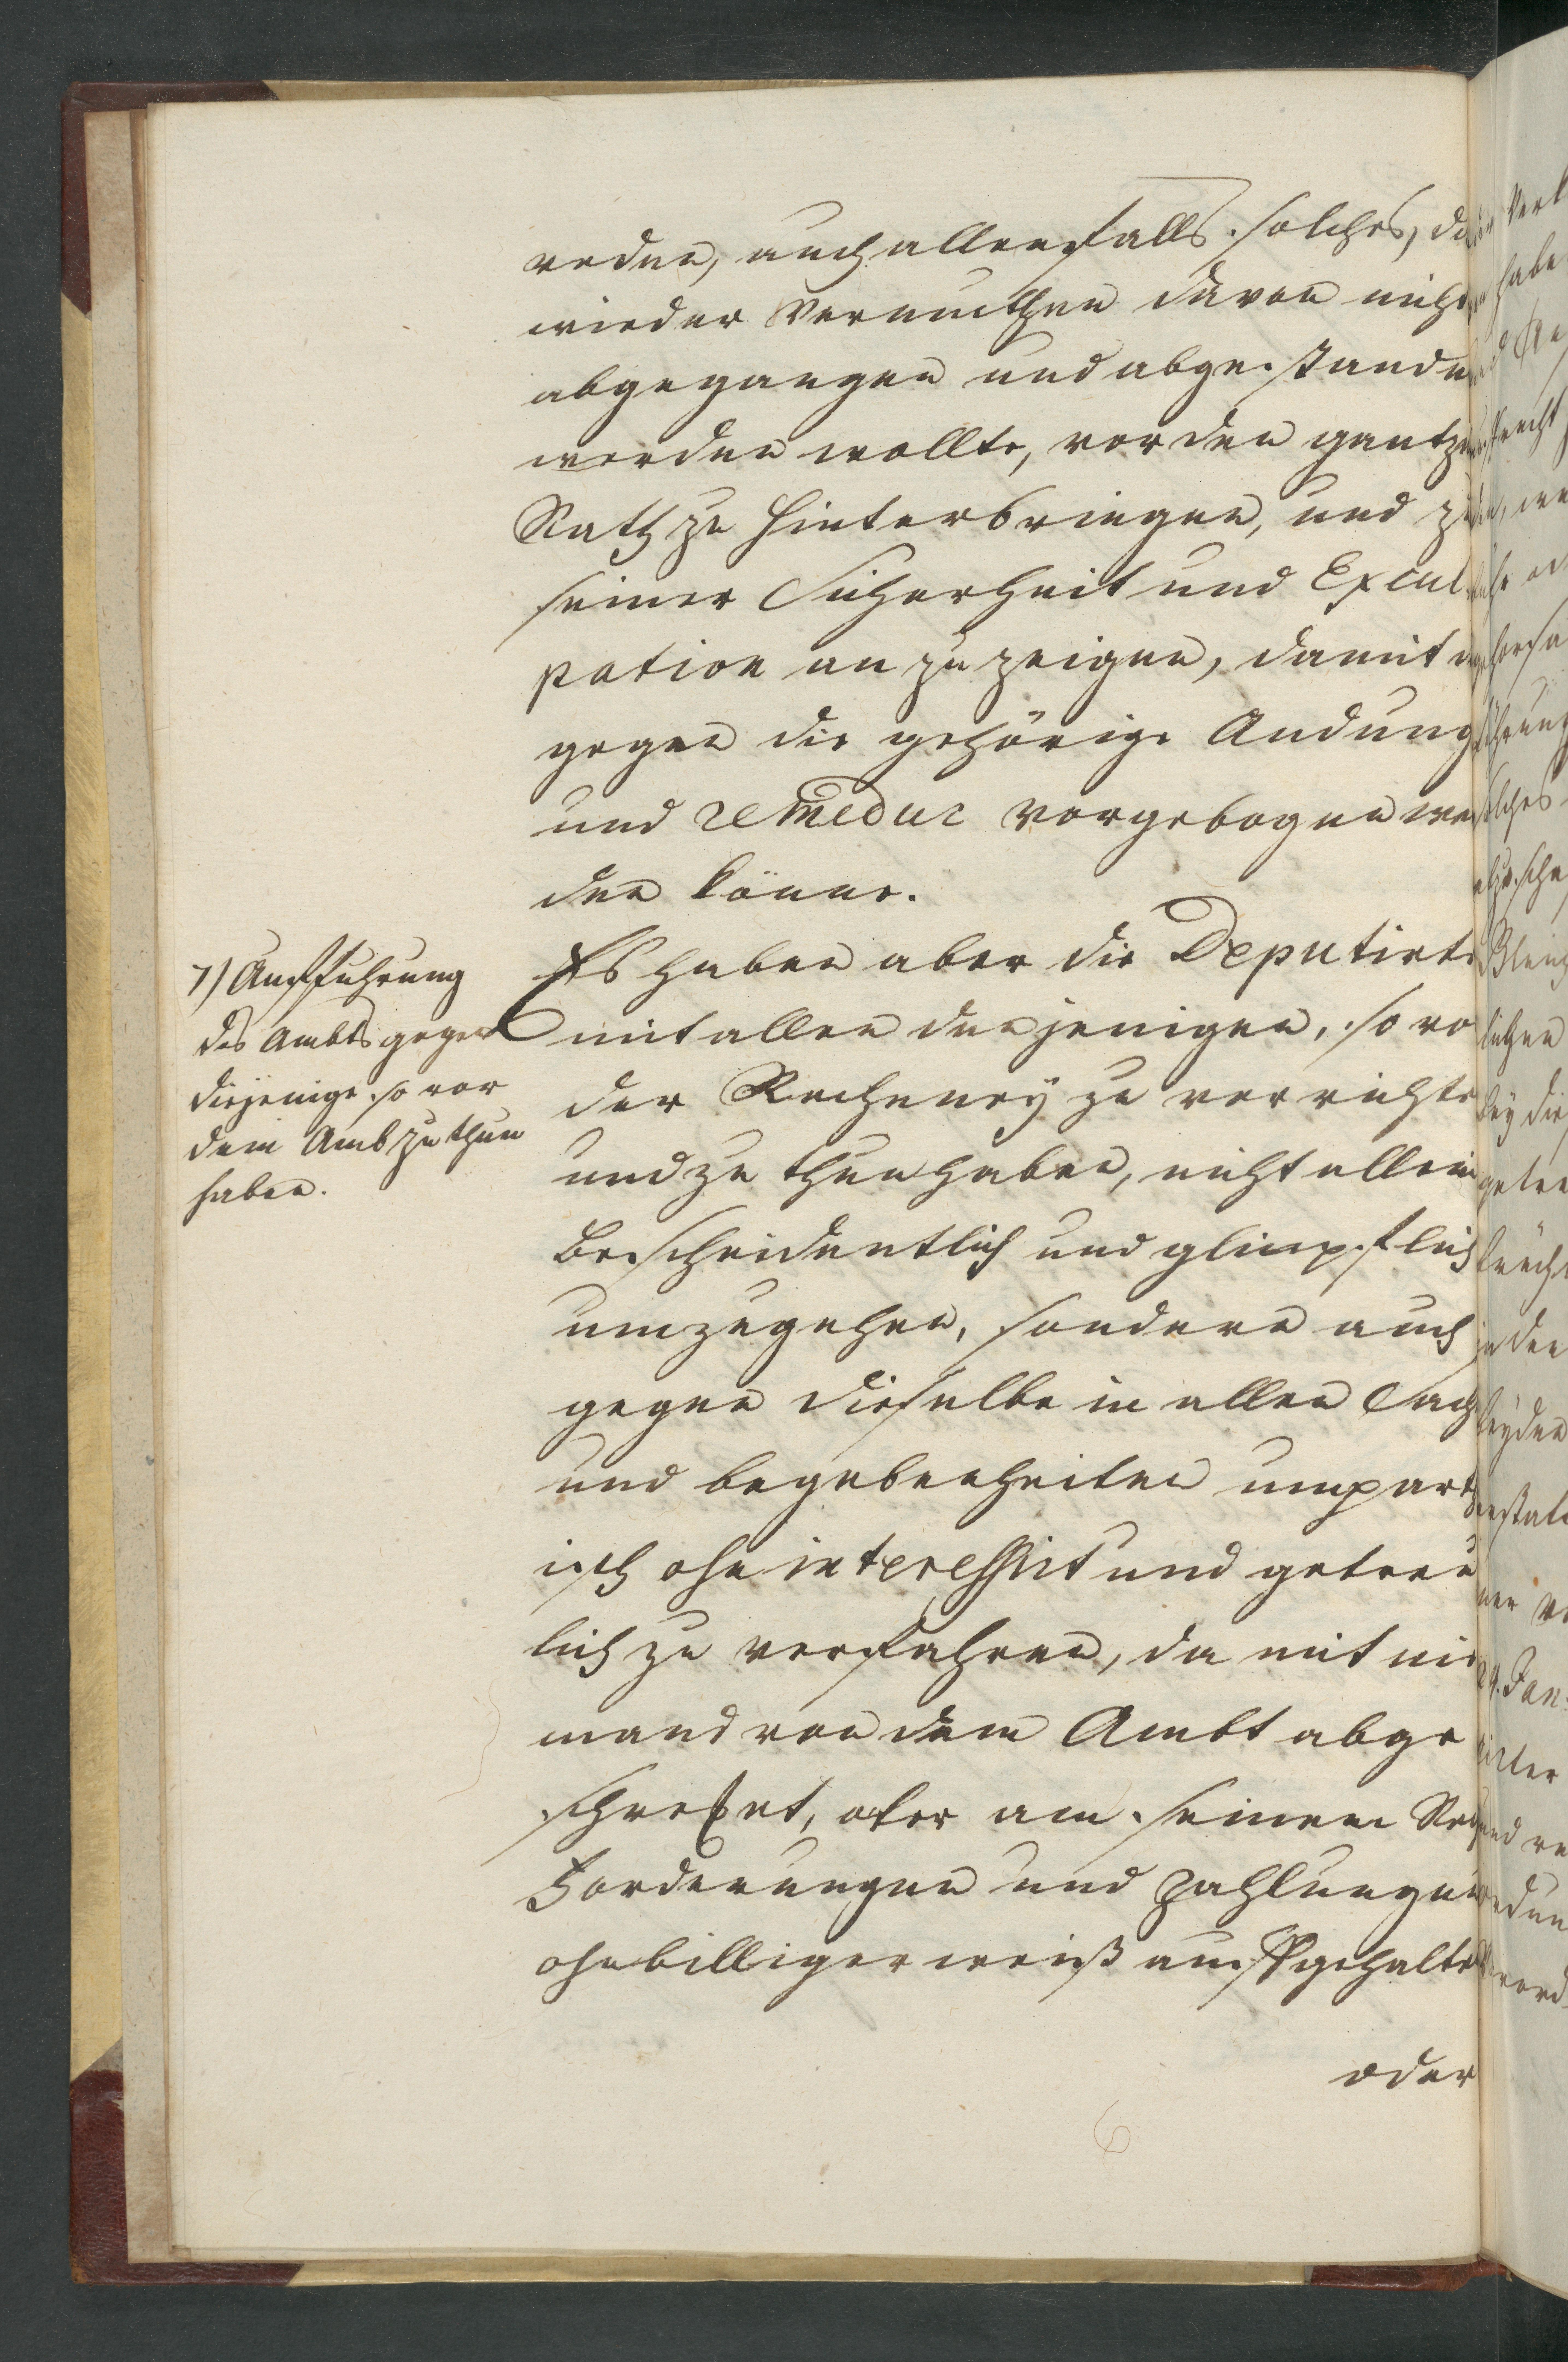 reden, auch allenfalls solches, da
wieder Vermuthen davon nicht
abgegangen und abgestanden
werden wollte, vor den gantzen
Rath zu hinterbringen, und zu
seiner Sicherheit und Excul
pation an zu zeigen, damit
gegen die gehörige Andung
und remedur vorgebogen wer
den könne.
7) Aufführung
des Ambts gegen
diejenige so vor
dem Amb zu thun
haben.
Es haben aber die Deputirte
mit allen denjenigen, so vo
der Recheney zu verrichte
und zu thun haben, nicht allein
bescheidentlich und glimpflich
umzugehen, sondern auch
gegen dieselbe in allen Sach
und begebenheiten unpart
isch ohn interessirt und getreu
lich zu verfahren, da mit nie
mand von dem Ambt abge
schreket, oder an seinen
Forderungen und Zahlungen
ohnbilliger weiß aufgehalte
oder